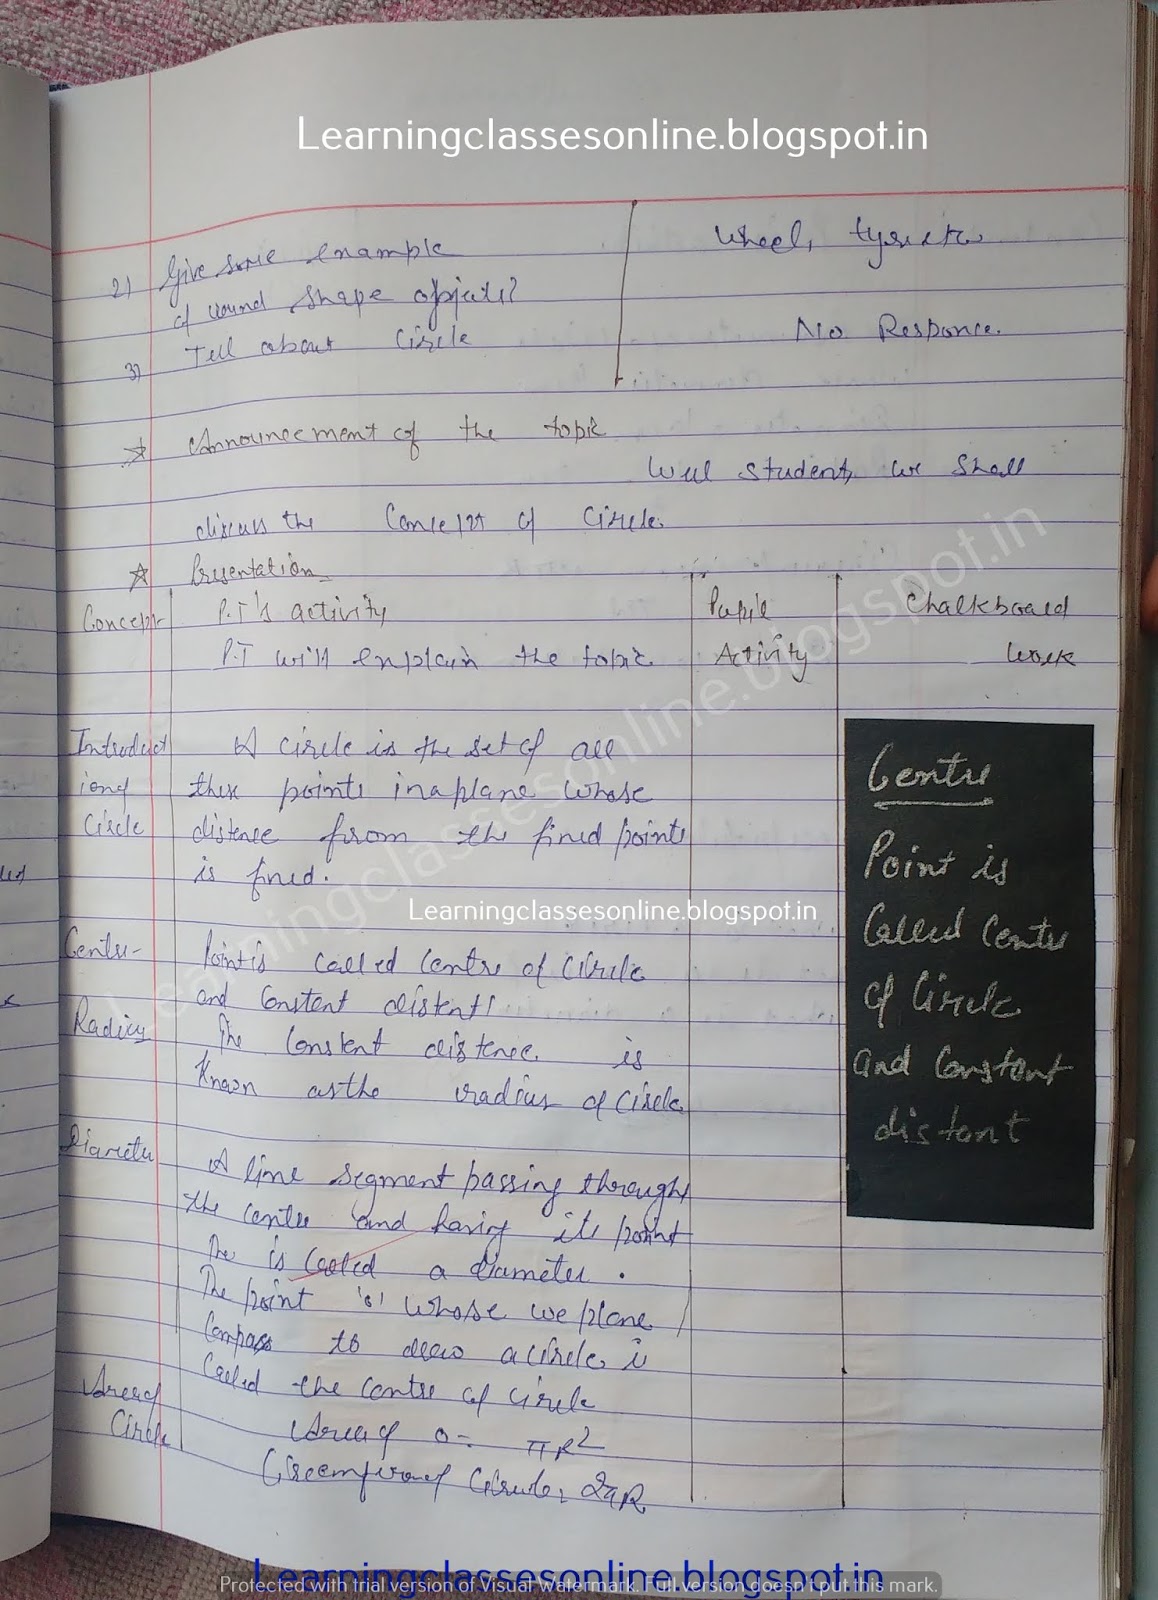 Learningclassesonline.blogspot.in
2) Give some example Wheel, tyre etc
of round shape objects?
3) Tell about Circle No Responce.
Announcement of the topic
Well student, we shall
discuss the Concept of Circle.
Presentation
Concept P.T's activity Pupil Chalkboard
P.T will explain the topic Activity work
Introduct A circle is the set of all
ion of points in a plane whose
Circle distence from the fixed points
is fixed.
Learningclassesonline.blogspot.in
Learningclassesonline.blogspot.in
Centre Point is called centre of Circle
and constent distent
Radius The Constent distence is
Known as the radius of Circle
Diameter A line segment passing through
the centre and having its point
The is called a Diameter.
The point 'o' whose we plane
Compass to draw a circle is
Called the centre of circle
Area of Area of o = πR2
Circle
of Circle, 2πR
Centre
Point is
Called Centre
of Circle
and Constent
distent
Learningclassesonline.blogspot.in
Protected with trial version of Visual Watermark. Full version doesn't put this mark.